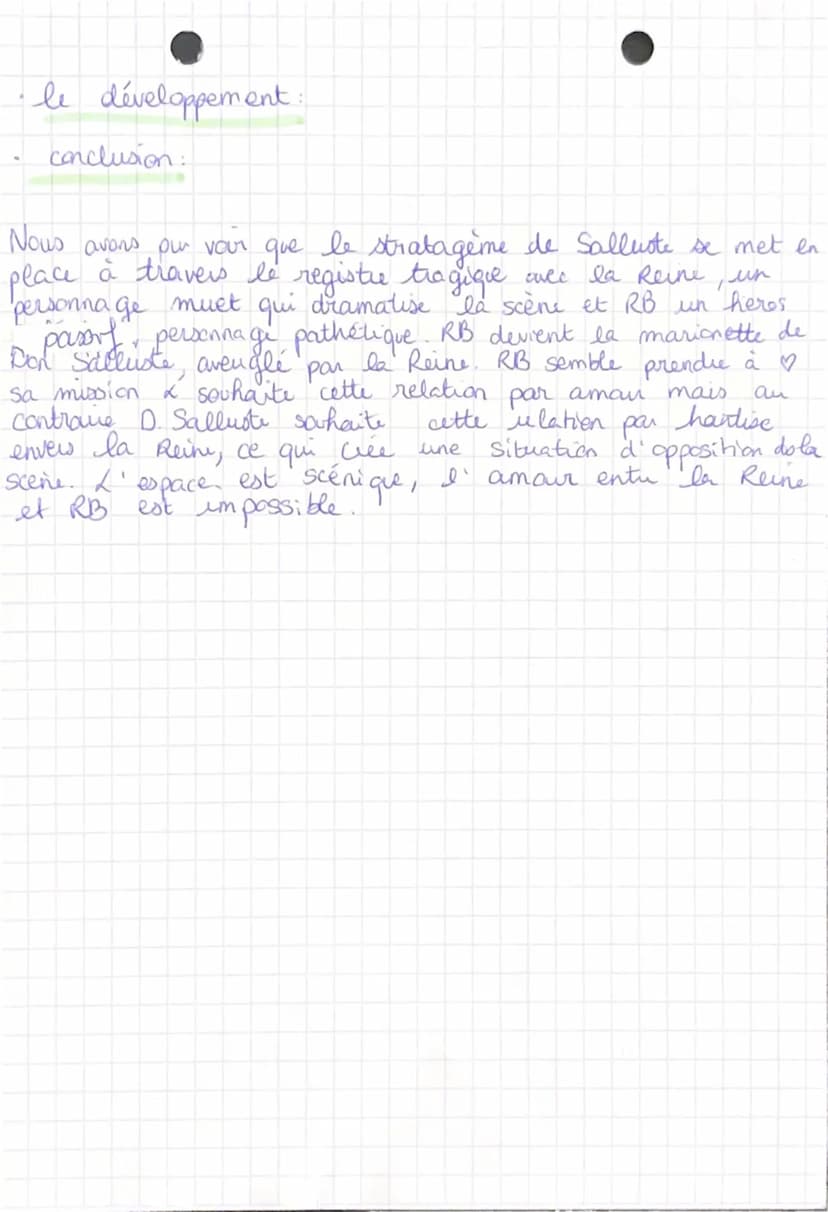 · le développement :
· conclusion :
Nous avons pu voir que le stratagème de Salluste se met en
place à travers le registre tragique avec la Reine, un
personnage muet qui dramatise la scène et RB un heros
passif, personnage pathétique. RB devient la marionette de
Don Salluste, aveuglé par la Reine. RB semble prendre à ♡
sa mission & souhaite cette relation par amour mais au
contraire D. Salluste souhaite cette relation par hantise
envers la Reine, ce qui crée une situation d'opposition ds la
scène. L'espace est scénique, l'amour entre la Reine
et RB est impossible.